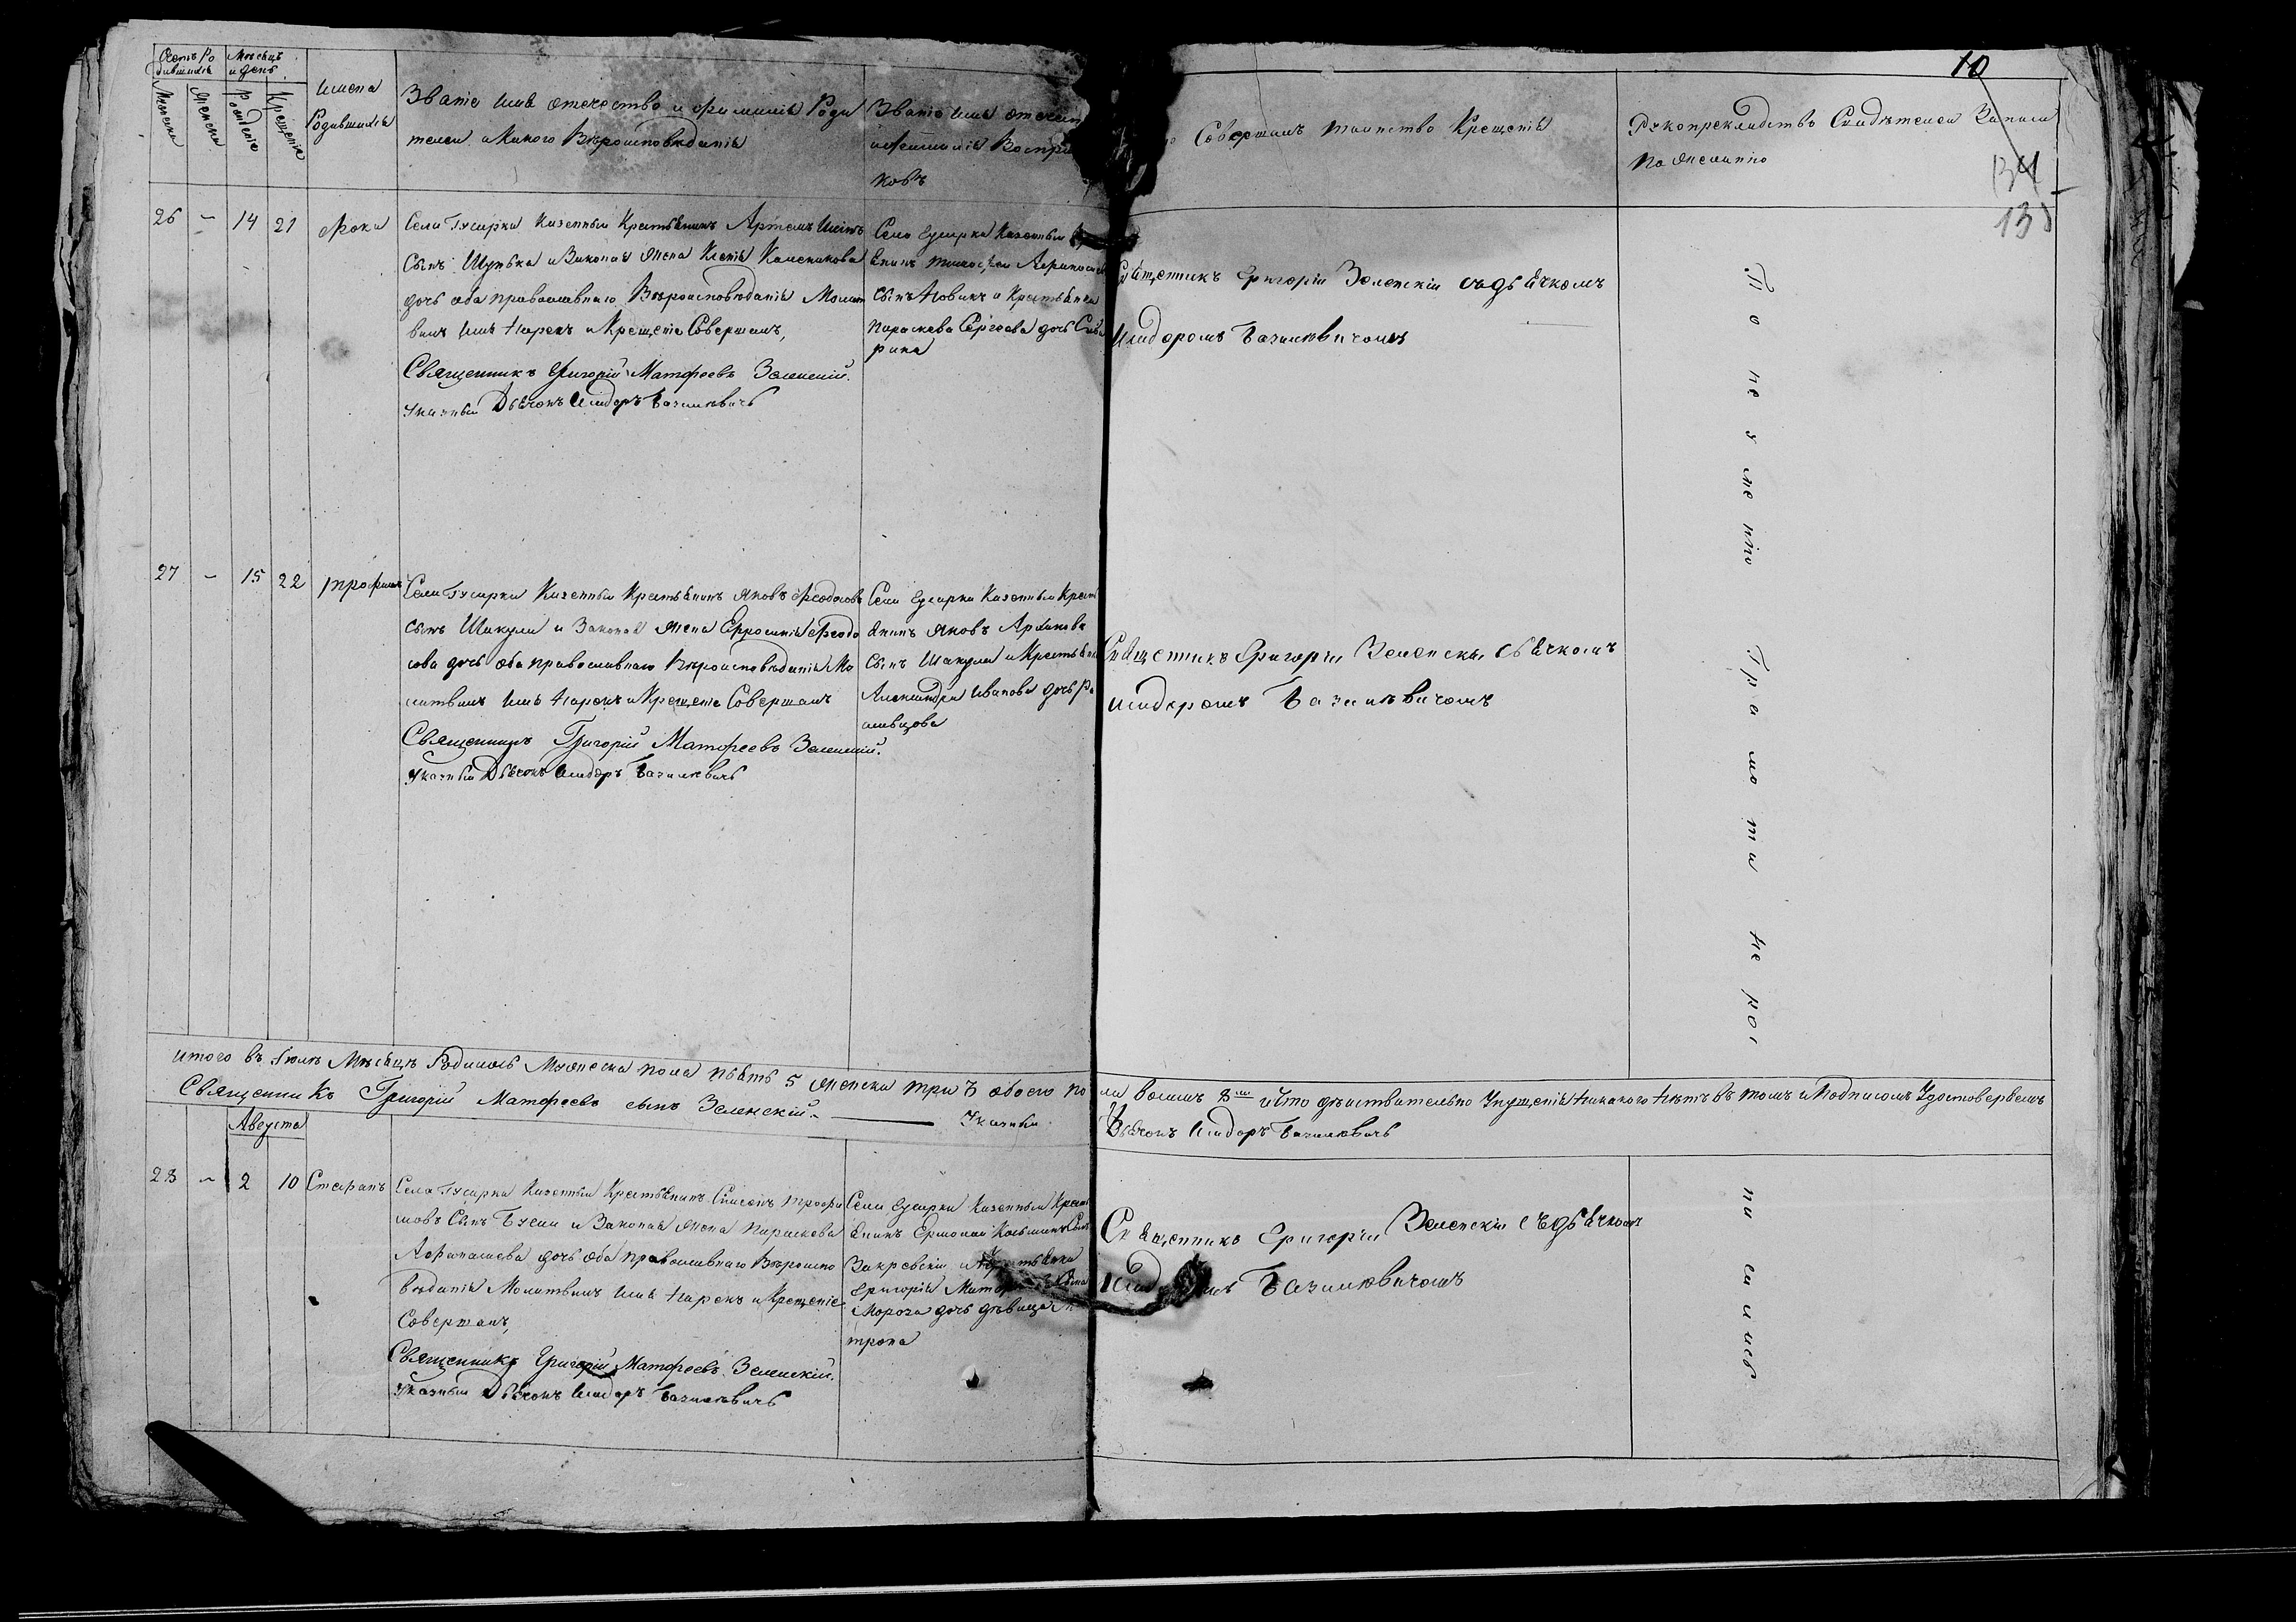 10
134
135
Счетъ Ро
дившихся
Мѣсяцъ
и день
Мужеска
Женска
Рожденіе
Крещенія
имена
Родившихся
Званіе имя отечество и фамилія Роди
телеи и Какого Вѣроисповѣданія
Званіе имя отечест
и фамилія Воспри
ковъ
Совершалъ таинство Крещенія
Рукоприкладство Свидѣтелеи Записи
По желанію
26 – 14 21 Фока
Села Гусарки Казенныи Крестьянинъ Артемъ
Сынъ и Законая жена Ксенія
дочь оба православнаго Вѣроисповѣданія Молит
вилъ имя нарекъ и Крещеніе Совершалъ,
Священникъ Григорій Матфеевъ Зеленскій.
Указныи Дьячокъ Исидоръ Базилѣвичъ
Села Гусарки Казенныи
янинъ Тимофеи
Сынъ Новикъ и Крестьянка
Параскева Сергеева дочь
рина
Священникъ Григоріи Зеленскіи съ дьячкомъ
Исидоромъ Базилѣвичомъ
27 – 15 22 Трофимъ
Села Гусарки Казенныи Крестьянинъ Яковъ Феодосовъ
Сынъ Шакула и Законая жена Ефросинія Феодо
дочь оба православнаго Вѣроисповѣданія Мо
литвилъ имя нарекъ и Крещеніе Совершалъ
Священникъ Григорій Матфеевъ Зеленскій.
Указныи Дьячокъ Исидоръ Базилѣвичъ
Села Гусарки Казенныи Крест
янинъ Яковъ
Сынъ Шакула и Крестьян
Александра Иванова дочь
Священникъ Григоріи Зеленскіи дьячкомъ
Исидоромъ Базилѣвичомъ
итого въ Іюлѣ Мѣсяцѣ Родилось Мужеска пола пять 5 женска три 3 обоего по
ла восимь 8 и что дѣиствительно Упущенія никакого нѣтъ въ томъ и Подписомъ Удостоверяемъ
Священникъ Григорій Матфеевъ сынъ Зеленскій. Указныи
Дьячокъ Исидоръ Базилѣвичъ
Августа
28 – 2 10 Стефанъ
Села Гусарки Казенныи Крестьянинъ Симеонъ Трофи
мовъ Сынъ и Законая жена Параскева
дочь оба православнаго Вѣроиспо
вѣданія Молитвилъ имя нарекъ и Крещеніе
Совершалъ,
Священникъ Григорій Матфеевъ Зеленскій.
Указныи Дьячокъ Исидоръ Базилѣвичъ
Села Гусарки Казенныи Крест
янинъ Ермолаи
Закревскіи
Григорія
Мороза дочь дѣвица
трона
Священникъ Григоріи Зеленскіи съ дьячкомъ
Базилѣвичомъ
По неумению Грамоти не рос
писались